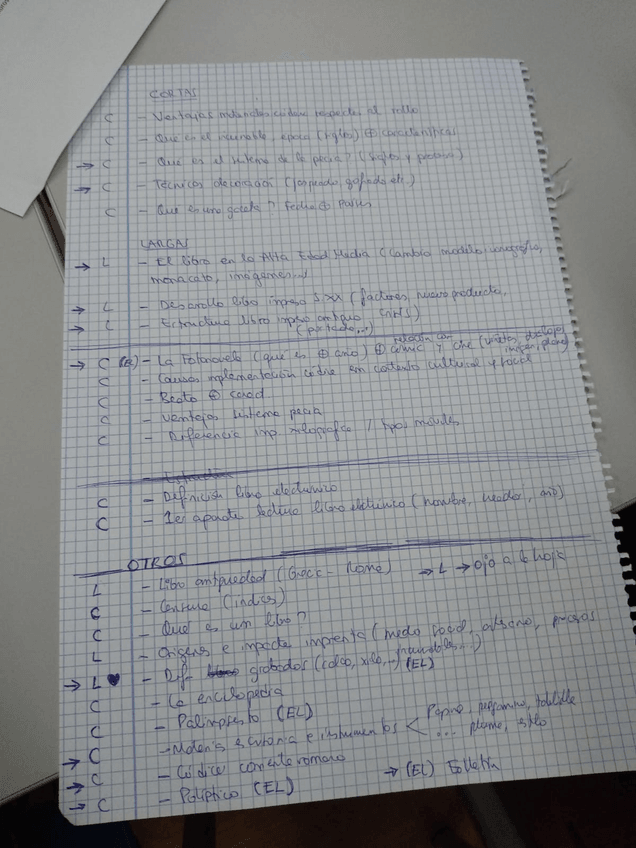 CORTAS
C - Ventajas códice respecto al rollo
C - Que es el incunable, época (siglos) ⊕ características
→ C - Que es el sistema de la pecia? (siglos y proceso)
→ C - Técnicas decoración (jaspeado, gofrado etc.)
C - Que es una gaceta? Fecha ⊕ Países
LARGAS
→ L - El libro en la Alta Edad Media (Cambio modelo iconográfico,
monacato, imágenes...)
→ L - Desarrollo libro impreso S. XX (factores, nuevo producto,
→ L - Estructura libro impreso antiguo
(portada,..)
→ C (EL) - La Fotonovela (que es ⊕ año) ⊕ relación con cómic y cine (viñetas, diálogos,
C - Causas implementación códice en contexto cultural y social
C - Beato ⊕
C - Ventajas sistema pecia
C - Diferencia imp. xilográfica / tipos móviles
C - Definición libro electrónico
C - 1er aparato lectura libro eletrónico (nombre, año)
OTROS
L - Libro antigüedad (Grecia - Roma) → L → Ojo a la hoja
C - Censura (índices)
C - Qué es un libro?
L - Orígenes e impacto imprenta (medio social, urbano, procesos
→ L - Dif. grabados (calco, xilo, ..) (EL) incunables,...)
C - La enciclopedia
C - Palimpsesto (EL)
C - Materia escritoria e instrumentos < Papiro, pergamino, tablilla
... pluma, stilo
→ C - Códices
→ C - Políptico (EL) → (EL)